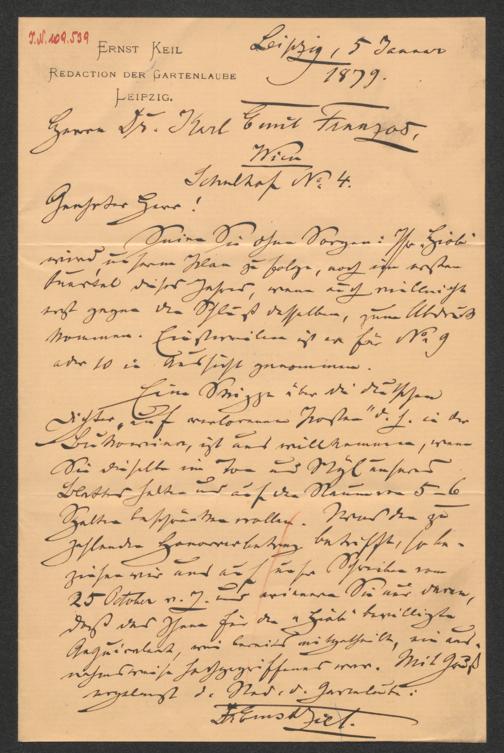 I.N. 109.539
ERNST KEIL
REDACTION DER GARTENLAUBE
LEIPZIG.
Leipzig, 5 Januar
1879.
Herrn Dr. Karl Emil Franzos,
Wien
Schulhof No 4.
Geehrter Herr!
Seien Sie ohne Sorgen: Ihr "Hiob"
wird, unserem Plan zu folge, noch im ersten
Quartal dieses Jahres, wenn auch vielleicht
erst gegen den Schluß desselben, zum Abdruck
kommen. Einstweilen ist er für No 9
oder 10 in Aussicht genommen.
Eine Skizze über die deutschen
Dichter "auf verlorenem Posten" d. h. in der
Bukowina, ist uns willkommen, wenn
Sie dieselbe im Ton und Styl unseres
Blattes halten und auf den Raum von 5-6
Spalten beschränken wollen. Was den zu
zahlenden Honorarbetrag betrifft, so be-
ziehen wir uns auf unser Schreiben vom
25 October v. J. und erinnern Sie nur daran,
daß das Ihnen für den "Hiob" bewilligte
Aequivalent, wie bereits mitgetheilt, ein aus-
nahmsweise hochgegriffenes war. Mit Gruß
ergebenst d. Red. d. Gartenlaube:
Dr Ernst Ziel.